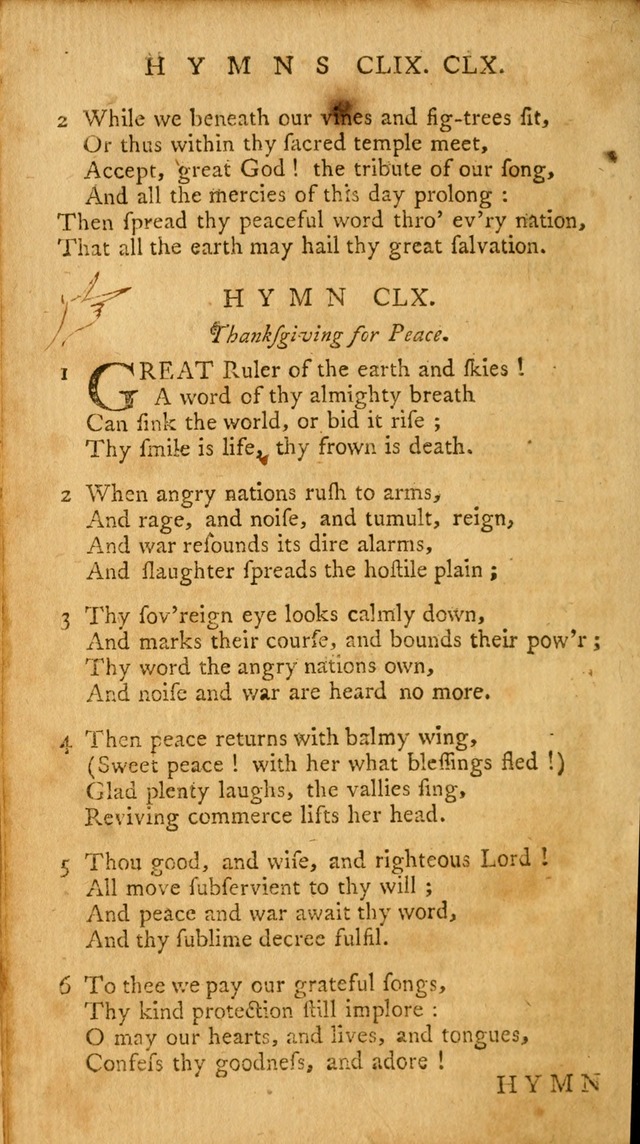 HYMNS CLIX. CLX.
2 While we beneath our vines and fig-trees ſit,
Or thus within thy ſacred temple meet,
Accept, great God! the tribute of our ſong,
And all the mercies of this day prolong:
Then ſpread thy peaceful word thro' ev'ry nation,
That all the earth may hail thy great ſalvation.
HYMN CLX.
Thankſgiving for Peace.
1 GREAT Ruler of the earth and ſkies!
A word of thy almighty breath
Can ſink the world, or bid it riſe;
Thy ſmile is life, thy frown is death.
2 When angry nations ruſh to arms,
And rage, and noiſe, and tumult, reign,
And war reſounds its dire alarms,
And ſlaughter ſpreads the hoſtile plain;
3 Thy ſov'reign eye looks calmly down,
And marks their courſe, and bounds their pow'r;
Thy word the angry nations own,
And noiſe and war are heard no more.
4 Then peace returns with balmy wing,
(Sweet peace! with her what bleſſings fled!)
Glad plenty laughs, the vallies ſing,
Reviving commerce lifts her head.
5 Thou good, and wiſe, and righteous Lord!
All move ſubſervient to thy will;
And peace and war await thy word,
And thy ſublime decree fulfil.
6 To thee we pay our grateful ſongs,
Thy kind protection ſtill implore:
O may our hearts, and lives, and tongues,
Confeſs thy goodneſs, and adore!
HYMN